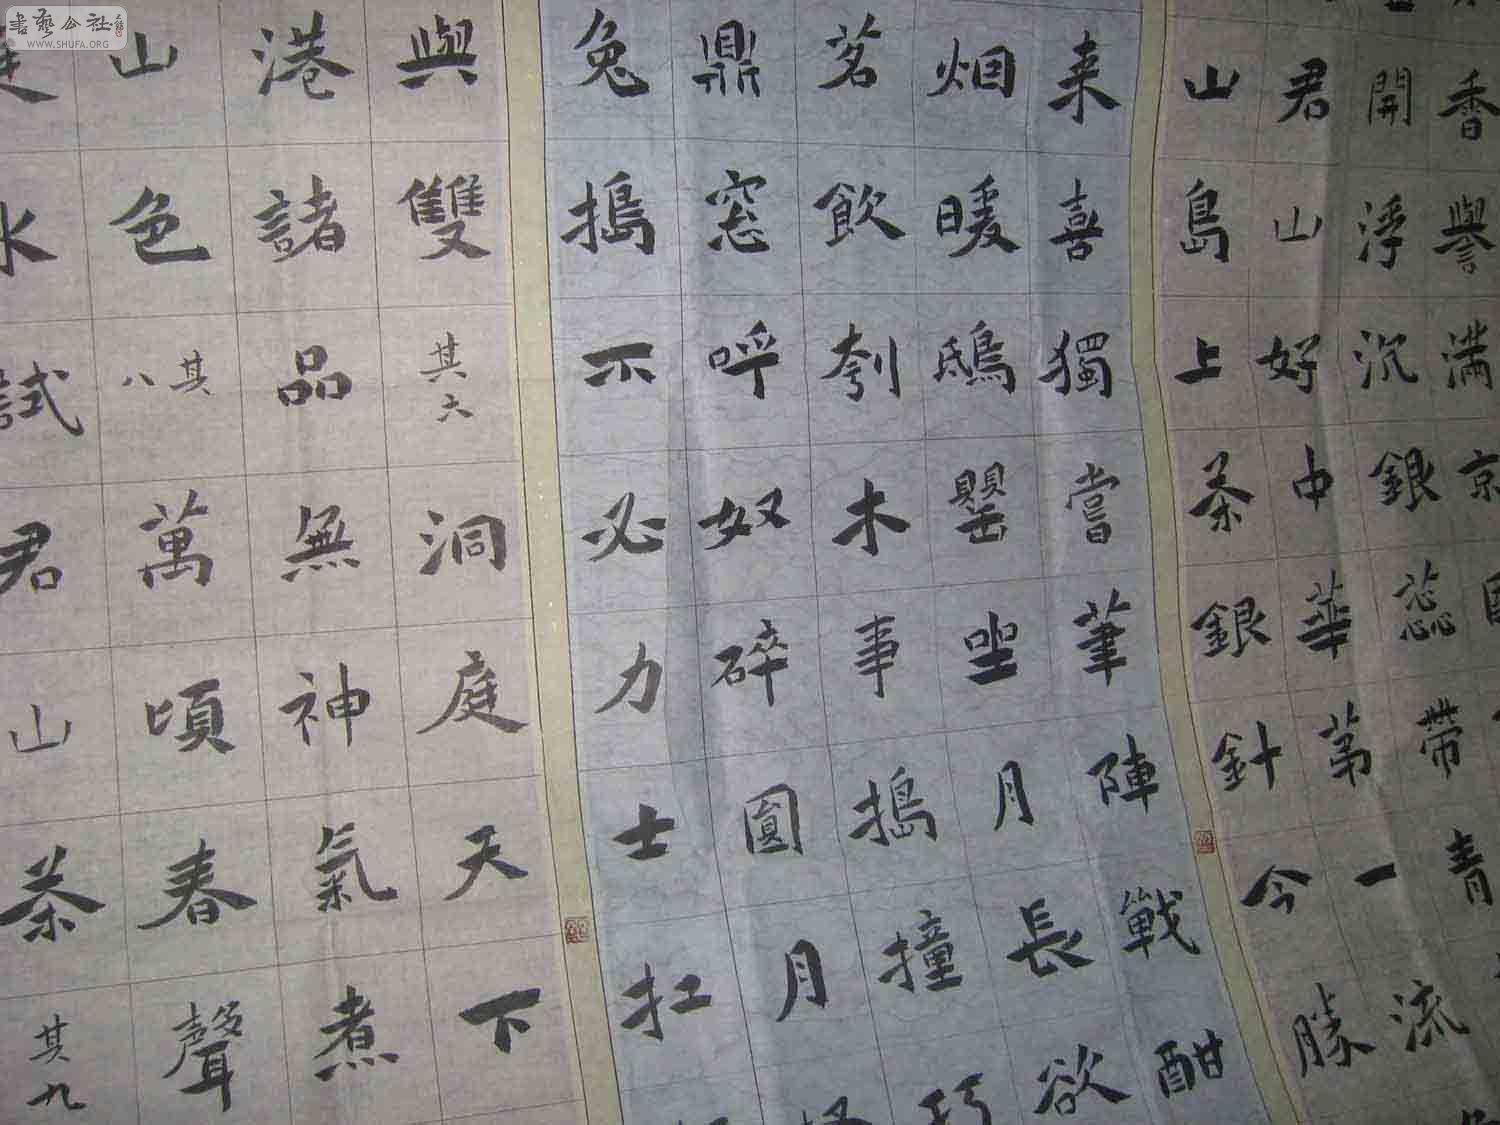 香譽滿京
開浮沉銀蕊帶青流
君山好中華第一勝
山島上茶銀針今
来喜獨嘗筆陣戰酣
烟暖鴟罌坐月長欲
茗飲刳木事搗撞
鼎窓呼奴碎圓月
兔搗不必力士扛
與雙
其六
洞庭天下
港諸品無神氣煮
山色
其八
萬頃春聲
水試君山茶
其九
書藝公社
WWW.SHUFA.ORG